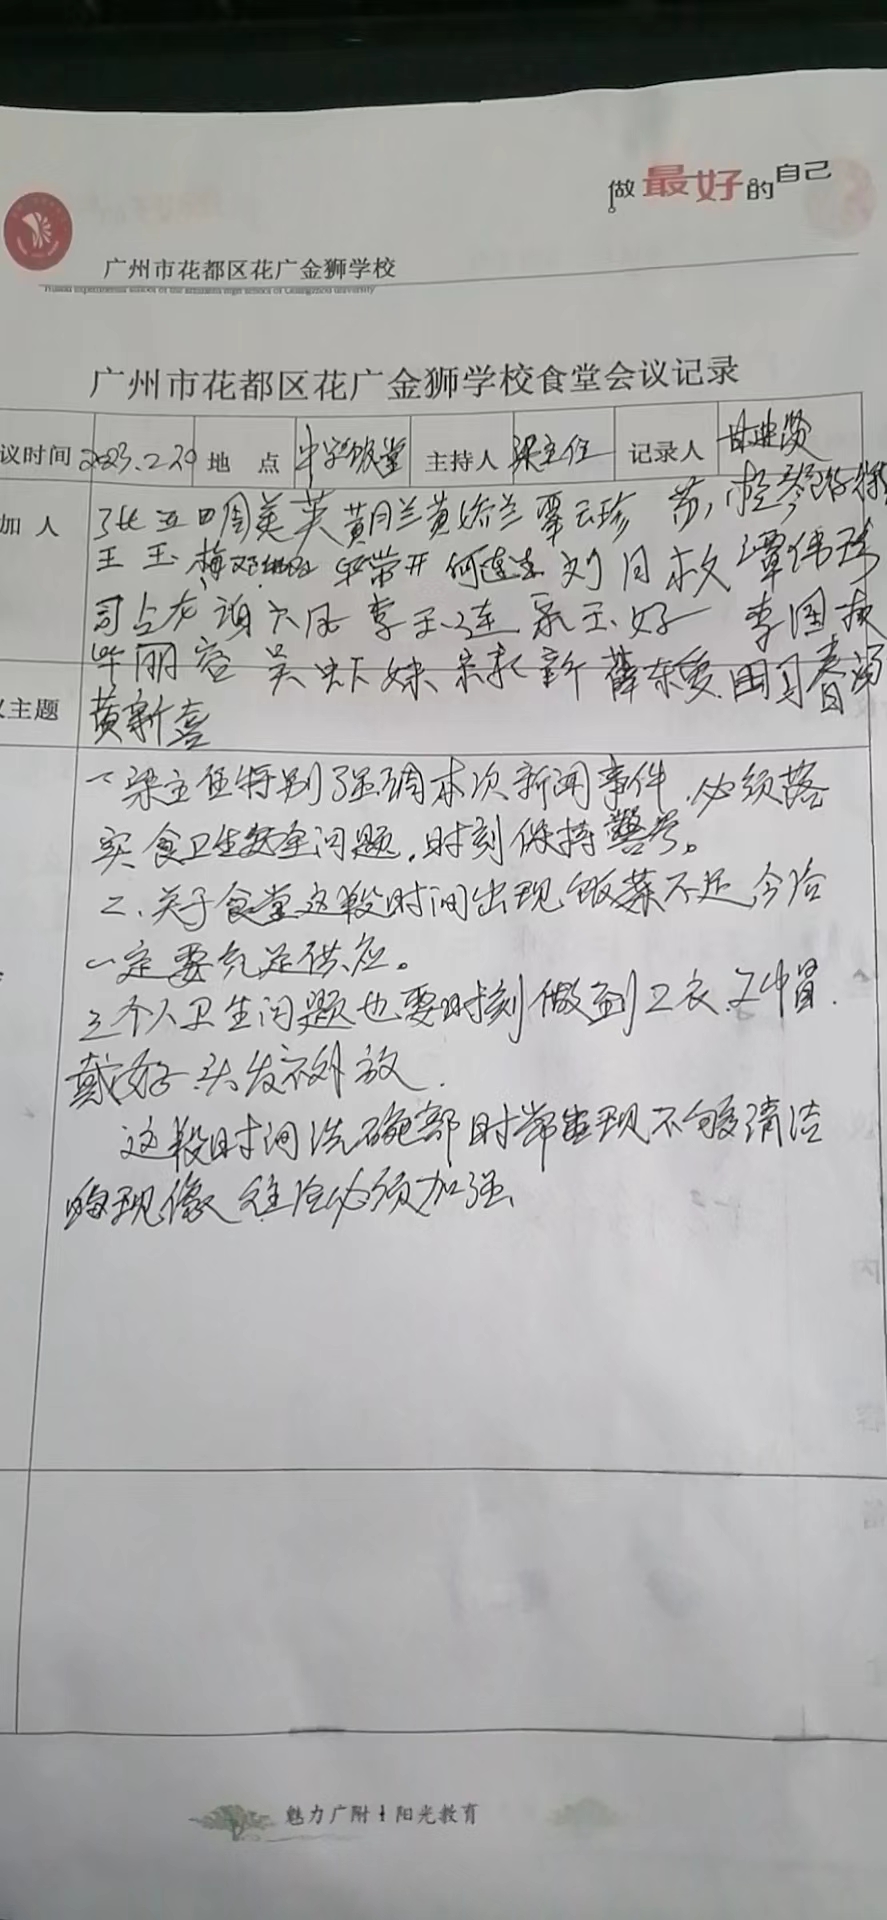 做最好的自己
广州市花都区花广金狮学校
广州市花都区花广金狮学校食堂会议记录
议时间 2023.2.20 地 点 中学饭堂 主持人 梁主任 记录人
加 人 张五四 周美英 黄月兰 黄娇兰 覃云珍
王玉梅 何连生 刘月
李玉连 李国
毕丽容 吴虾妹 薛东爱 田习春
议主题 黄新喜
一、梁主任特别强调本次新闻事件,必须落
实食卫生安全问题,时刻保持警号。
二、关于食堂这段时间出现饭菜不足今后
一定要充足供应。
三个人卫生问题也要时刻做到工衣、工帽.
戴好.头发不外放.
这段时间洗碗部时常出现不够清洁
现像 往后必须加强
魅力广附 阳光教育